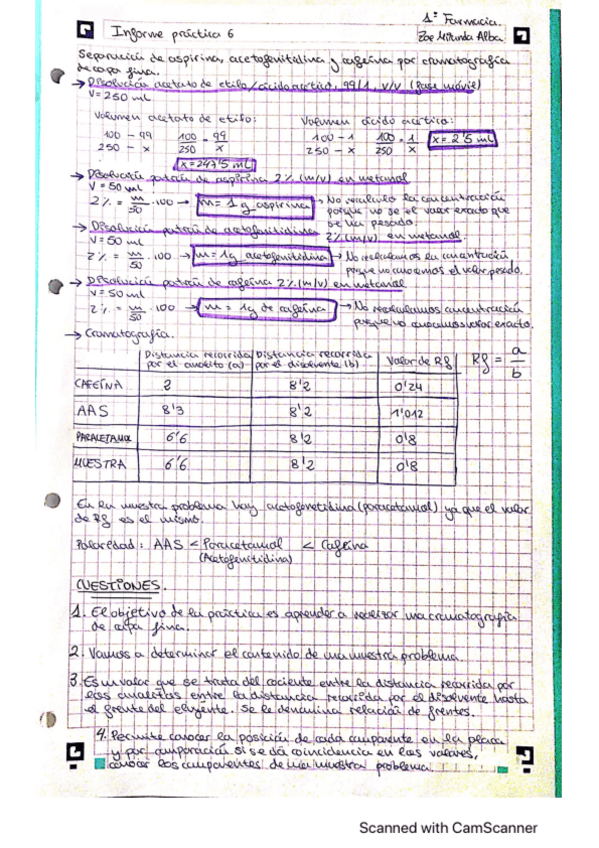 1º Farmacia.
Informe práctica 6
Zoe Miranda Alba.
Separación de aspirina, acetofenitidina y cafeína por cromatografía
de capa fina.
→ Disolución acetato de etilo/ácido acético, 99/1, v/v (fase móvil)
V=250 ml
Volumen acetato de etilo:
100 - 99
250 - x
100/250 = 99/x
x=247'5 ml
Volumen ácido acético:
100 - 1
250 - x
100/250 = 1/x
x=2'5 ml
→ Disolución patrón de aspirina 2% (m/v) en metanol
V=50 ml
2% = m/50 · 100 → m= 1 g aspirina → No recalculo la concentración
porque no se el valor exacto que
se ha pesado.
→ Disolución patrón de acetofenitidina 2% (m/v) en metanol.
V=50 ml
2% = m/50 · 100 → m= 1g acetofenitidina → No recalculamos la concentración
porque no conocemos el valor pesado.
→ Disolución patrón de cafeína 2% (m/v) en metanol
V=50 ml
2% = m/50 · 100 → m = 1g de cafeína → No recalculamos concentración
porque no conocemos valor exacto.
→ Cromatografía.
Distancia recorrida por el analito (a) | Distancia recorrida por el disolvente (b) | Valor de Rf
CAFEÍNA | 2 | 8'2 | 0'24
AAS | 8'3 | 8'2 | 1'012
PARACETAMOL | 6'6 | 8'2 | 0'8
MUESTRA | 6'6 | 8'2 | 0'8
Rf = a/b
En la muestra problema hay acetofenetidina (paracetamol) ya que el valor
de Rf es el mismo.
Polaridad: AAS < Paracetamol < Cafeína
(Acetofenitidina)
CUESTIONES.
1. El objetivo de la práctica es aprender a realizar una cromatografía
de capa fina.
2. Vamos a determinar el contenido de una muestra problema.
3. Es un valor que se trata del cociente entre la distancia recorrida por
los analitos entre la distancia recorrida por el disolvente hasta
el frente del eluyente. Se le denomina relación de frentes.
4. Permite conocer la posición de cada componente en la placa
y por comparación si se da coincidencia en los valores,
conocer los componentes de una muestra problema.
Scanned with CamScanner